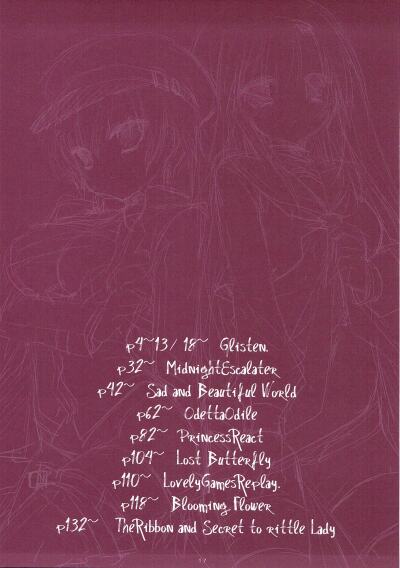 p4~13/ 18~ Glisten.
p32~ MidnightEscalater
p42~ Sad and Beautiful World
p62~ OdettaOdile
p82~ PrincessReact
p104~ Lost Butterfly
p110~ LovelyGamesReplay.
p118~ Blooming Flower
p132~ TheRibbon and Secret to rittle Lady
17